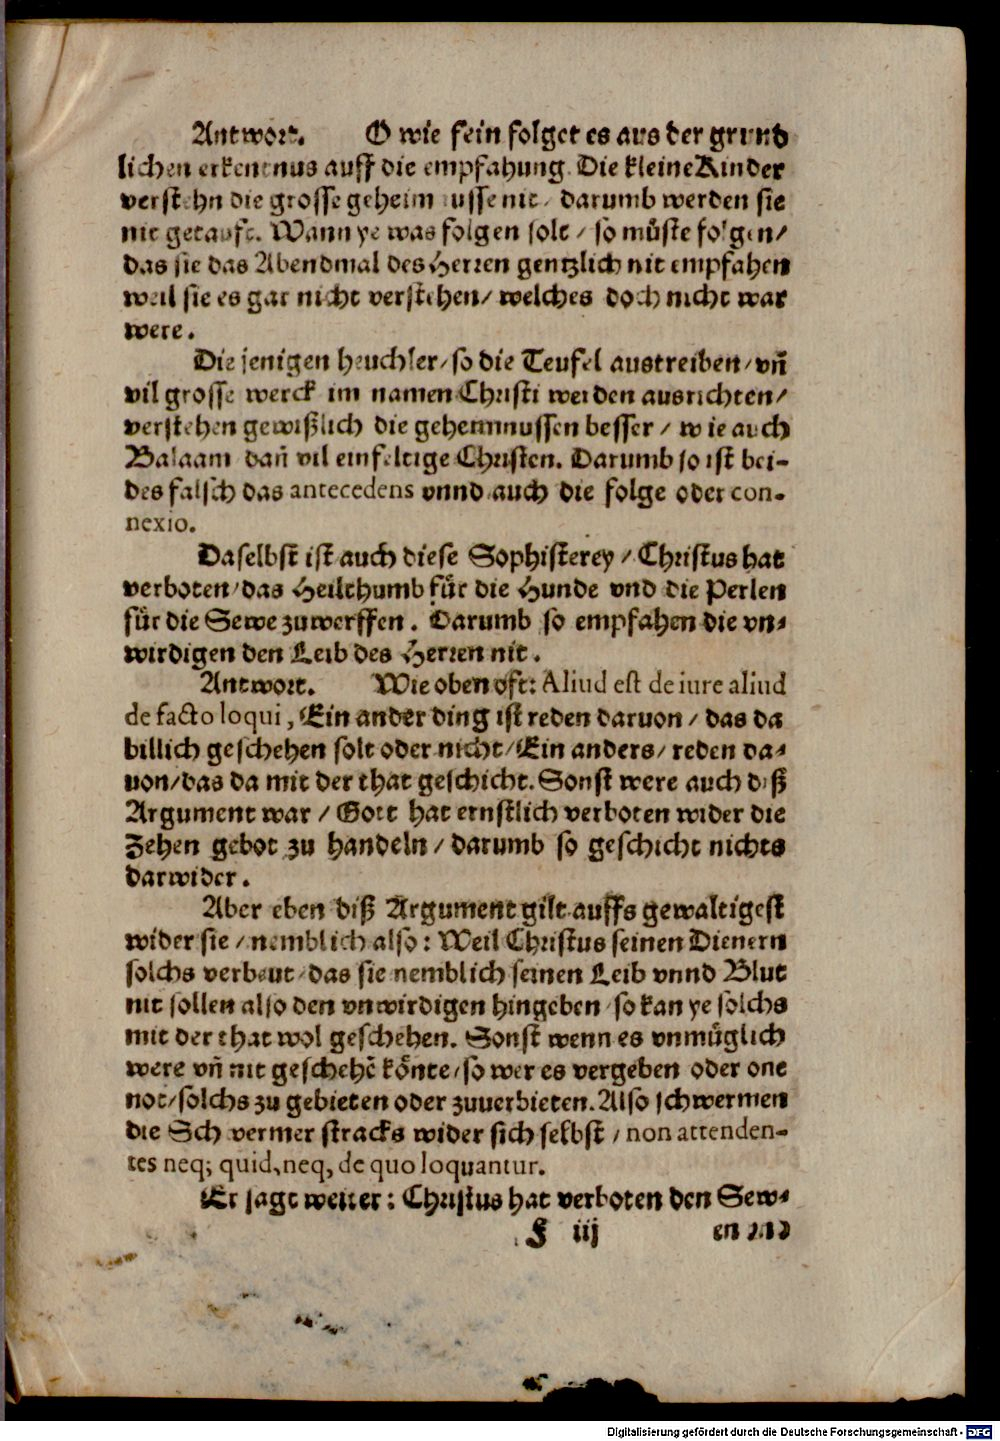 Antwort. O wie fein folget es aus der grund
lichen erkentnus auff die empfahung. Die kleine Kinder
verstehn die grosse geheimnusse nit / darumb werden sie
nit getauft. Wann ye was folgen solt / so můste folgen /
das sie das Abendmal des Herren gentzlich nit empfahen
weil sie es gar nicht verstehen / welches doch nicht war
were.
Die jenigen heuchler / so die Teufel austreiben / vñ
vil grosse werck im namen Christi werden ausrichten /
verstehen gewißlich die geheimnussen besser / wie auch
Balaam dañ vil einfeltige Christen. Darumb so ist bei-
des falsch das antecedens vnnd auch die folge oder con-
nexio.
Daselbst ist auch diese Sophisterey / Christus hat
verboten / das Heilthumb fůr die Hunde vnd die Perlen
fůr die Sewe zuwerffen. Darumb so empfahen die vn-
wirdigen den Leib des Herren nit.
Antwort. Wie oben oft: Aliud est de iure aliud
de facto loqui, Ein ander ding ist reden daruon / das da
billich geschehen solt oder nicht / Ein anders / reden da-
uon / das da mit der that geschicht. Sonst were auch diß
Argument war / Gott hat ernstlich verboten wider die
Zehen gebot zu handeln / darumb so geschicht nichts
darwider.
Aber eben diß Argument gilt auffs gewaltigest
wider sie / nemblich also: Weil Christus seinen Dienern
solchs verbeut / das sie nemblich seinen Leib vnnd Blut
nit sollen also den vnwirdigen hingeben / so kan ye solchs
mit der that wol geschehen. Sonst wenn es vnmůglich
were vñ nit geschehẽ kȯnte / so wer es vergeben oder one
not / solchs zu gebieten oder zuuerbieten. Also schwermen
die Schwermer stracks wider sich selbst / non attenden-
tes neq; quid, neq, de quo loquantur.
Er sagt weiter: Christus hat verboten den Sew-
F iij en
Digitalisierung gefördert durch die Deutsche Forschungsgemeinschaft - DFG